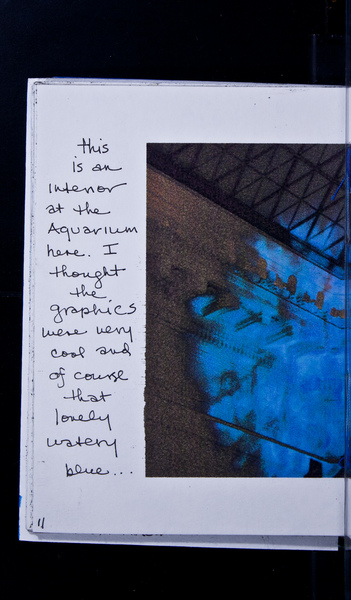 this
is an
interior
at the
Aquarium
here. I
thought
the
graphics
were very
cool and
of course
that
lovely
watery
blue...
11